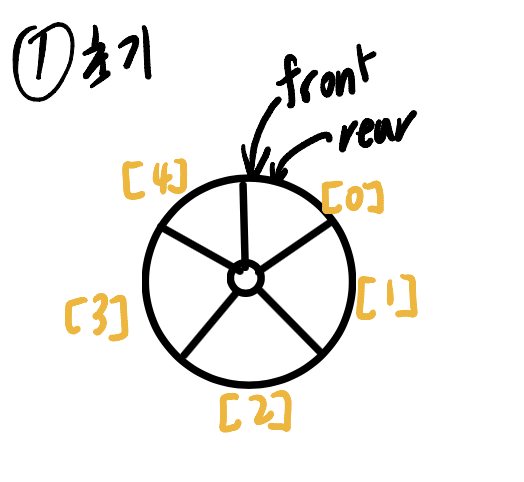 ① 초기
front
rear
[4] [0]
[3] [1]
[2]